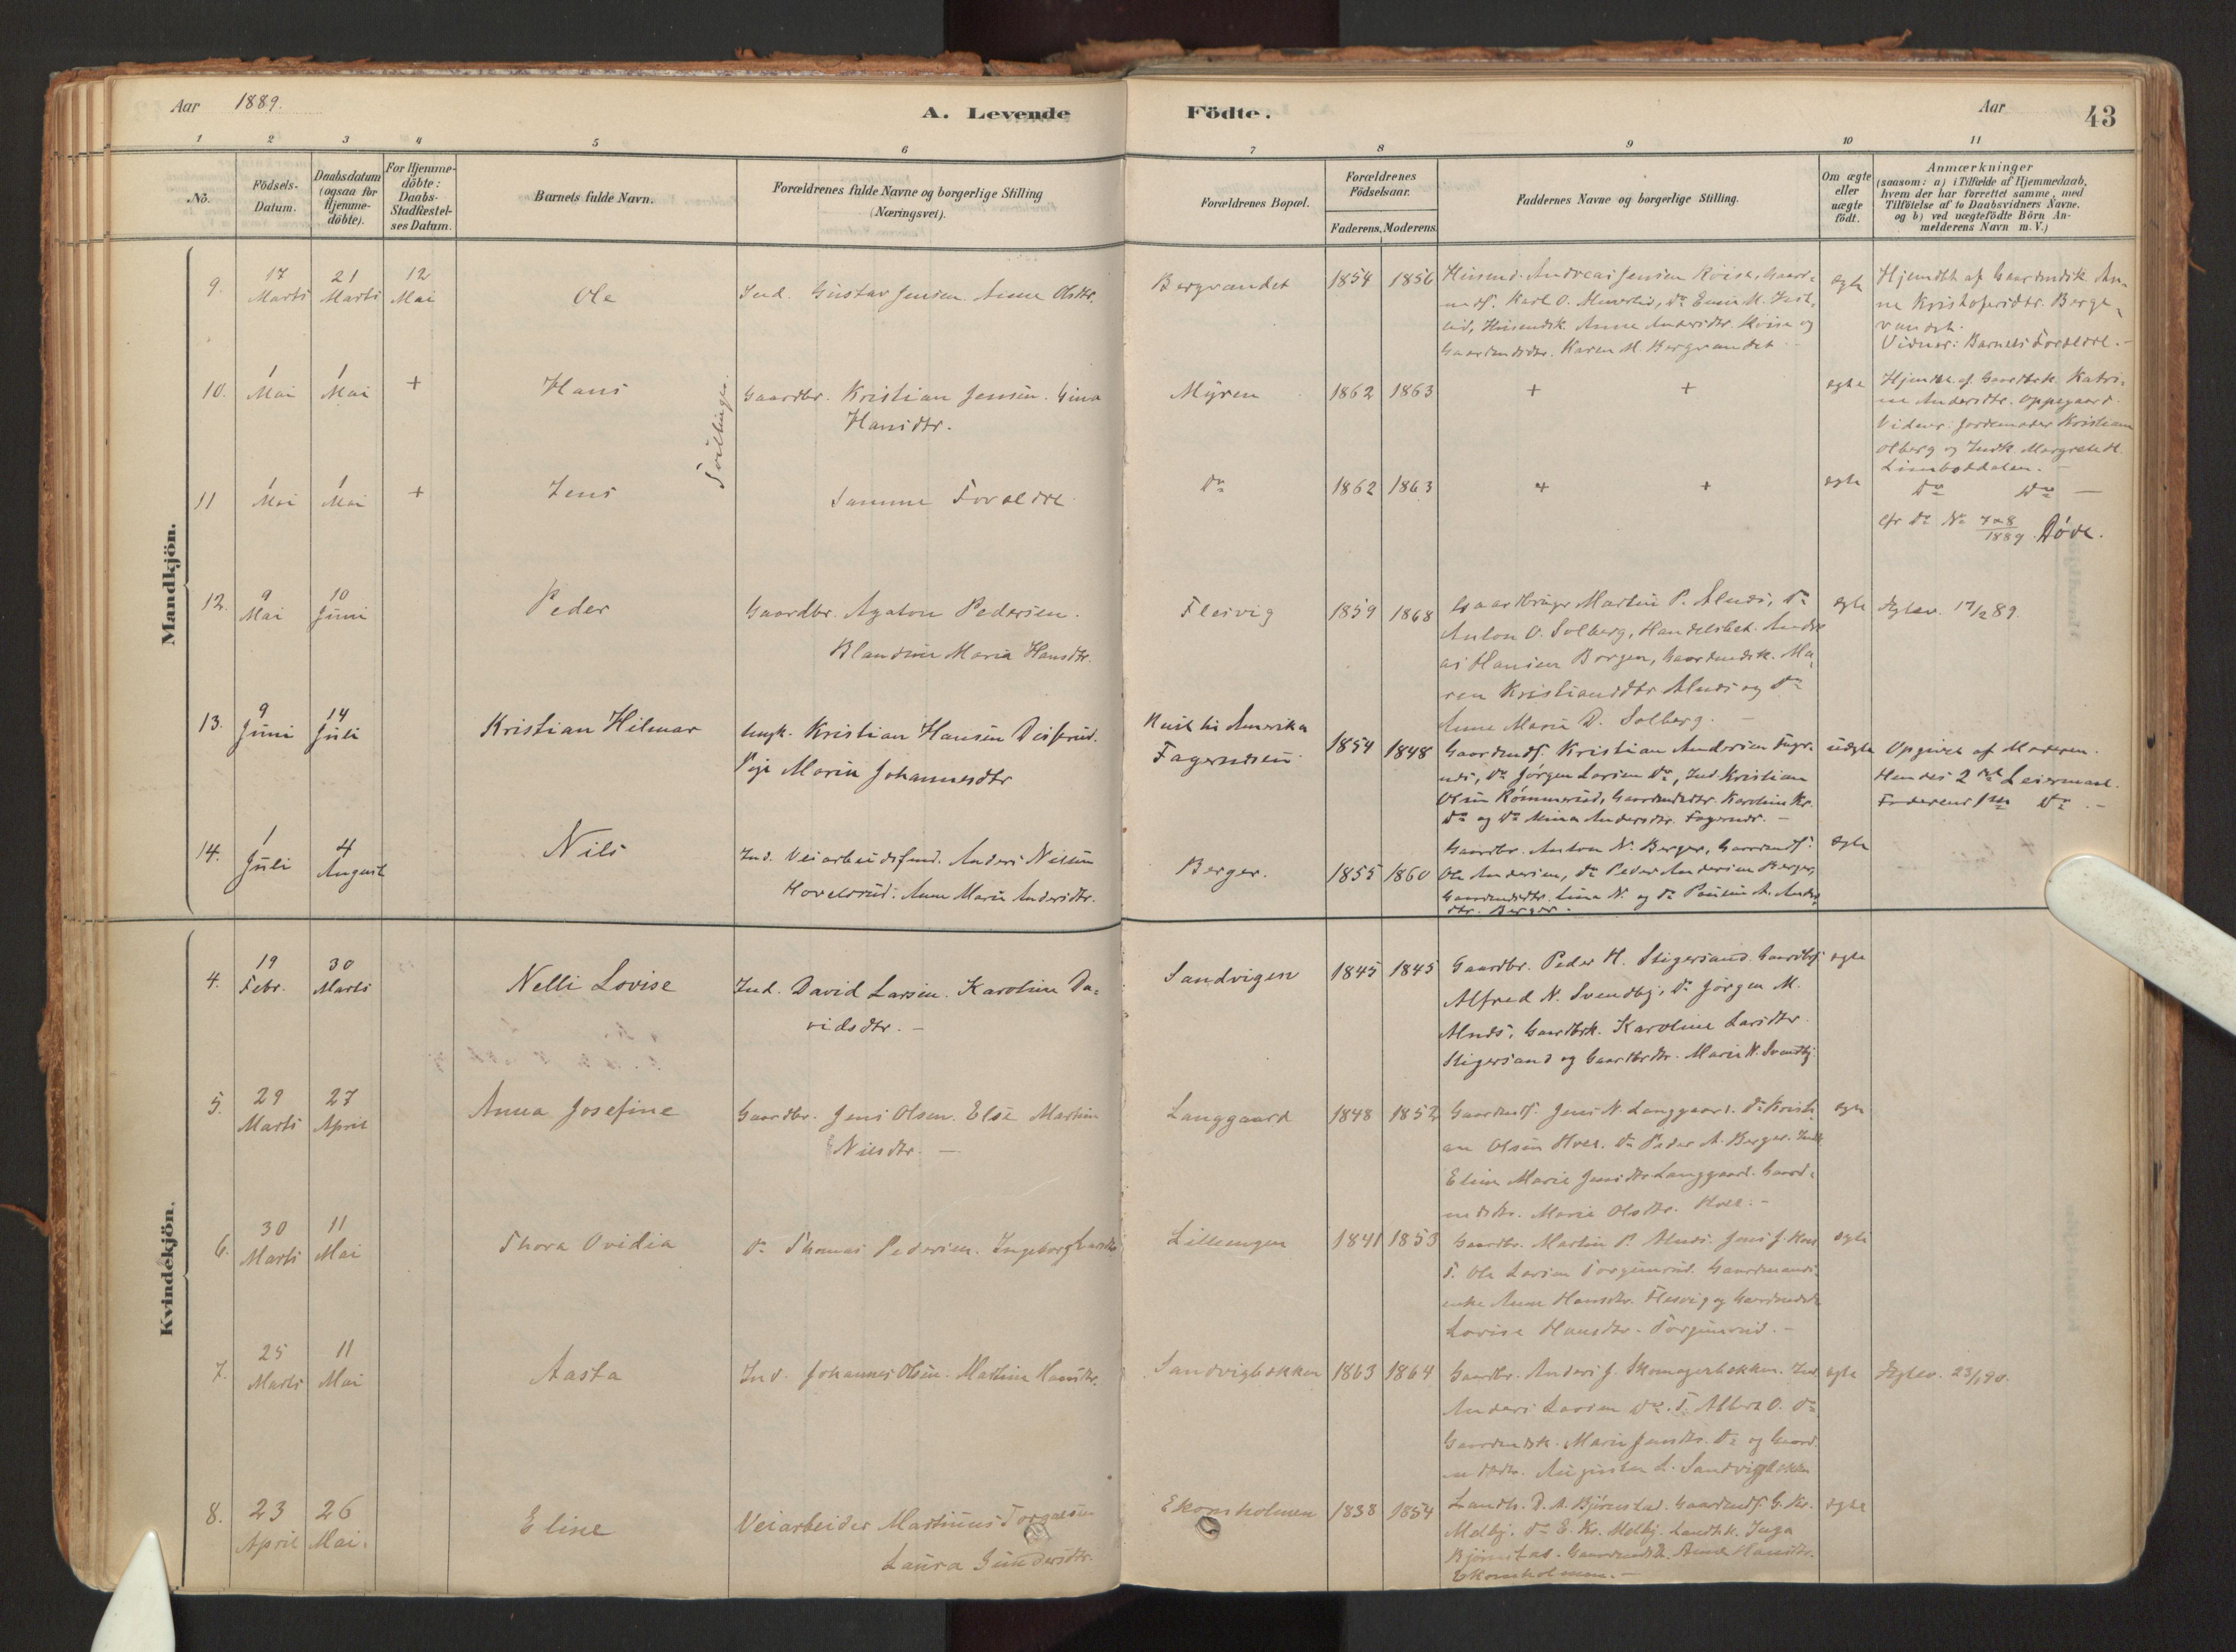 Aar 1889.
A. Levende
Födte.
Aar
43
1 2 3 4 5 6 7 8 9 10 11
No.
Födsels-
Datum.
Daabsdatum
(ogsaa for
Hjemme-
döbte).
For Hjemme-
döbte:
Daabs-
Stadfæstel-
ses Datum.
Barnets fulde Navn.
Forældrenes fulde Navne og borgerlige Stilling
(Næringsvei).
Forældrenes Bopæl.
Forældrenes
Födselsaar.
Faderens. Moderens.
Faddernes Navne og borgerlige Stilling.
Om ægte
eller
uægte
födt.
Anmærkninger
(saasom: a) i Tilfælde af Hjemmedaab,
hvem der har forrettet samme, med
Tilföielse af to Daabsvidners Navne,
og b) ved uægtefödte Börn An-
melderens Navn m. V.)
Mandkjön.
9. 17 Marts 21 Marts 12 Mai Ole
Ind. Gustav Jensen. Anne Olsdtr.
Bergvandet 1854 1856
Husmd. Andreas Jensen Röise, Gaard-
Gaardmdsdtr. Karen M. Bergvandet
ægte
Hjemdbt af Gaardmdsk. An-
ne Kristofersdtr. Berg-
vandet.
Vidner: Barnets Forældre.
10. 1 Mai 1 Mai + Hans
Tvillinger.
Gaardbr. Kristian Jensen. Gina
Hansdtr.
Myren 1862 1863 + + ægte
Hjemdbt. af Gaardbrk. Katri-
ne Andersdtr. Oppegaard.
Vidner: Jordemoder Kristiane
Olberg og Indk. Margrete H.
11 1 Mai 1 Mai + Jens
Samme Forældre
Do 1862 1863 + + ægte
Do Do
cfr Do No 7&8/1889 Døde.
12. 9 Mai 10 Juni Peder
Gaardbr. Agaton Pedersen.
Blandine Maria Hansdtr.
Flesvig 1859 1868
Gaardbruger Martin P. Alnæs, Do
Anton O. Solberg, Handelsbet. Andre
as Hansen Borgen, Gaardmdsk. Ma-
ren Kristiansdtr Alnæs og Do
Anne Marie D. Solberg.
ægte
17/2 89.
13. 9 Juni 14 Juli Kristian Hilmar
Ungk. Kristian Hansen Disserud.
Pige Marin Johannesdtr
Reist til Amerika
Fagernæsen 1854 1848
Gaardmds. Kristian Andersen Fager-
næs, Do Jörgen Larsen Do, Ind. Kristian
Olsen Römmerud, Gaardmdsdtr. Karoline Kr.
Do og Do Mina Andersdtr. Fagernæs.
uægte
Opgivet af Moderen.
Hendes 2det Leiermaal.
Faderens 1ste Do
14. 1 Juli 4 August Nils
Ind. Veiarbeidsfmd. Anders Nilsen
Hovelsrud. Anne Marie Andersdtr.
Berger. 1855 1860
Gaardbr. Anton N. Berger, Gaardmds.
Ole Andersen, Do Peder Andersen Berger,
Gaardmdsdtr. Lina N. og Do Pauline A. Anders
dtr. Berger.
ægte
Kvindekjön.
4. 19 Febr. 30 Marts Nelli Lovise
Ind. David Larsen. Karoline Da-
vidsdtr.
Sandvigen 1845 1845
Gaardbr. Peder H. Stigersand. Gaardbrs.
Alfred N. Svendby, Do Jörgen M.
Alnæs, Gaardbrk. Karoline Larsdtr
Stigersand og Gaardbrdtr. Marie N. Svendby
ægte
5. 29 Marts 27 April Anna Josefine
Gaardbr. Jens Olsen. Else Martine
Nilsdtr.
Langgaard 1848 1852
Gaardmds. Jens N. Langgaard. Do Kristi-
an Olsen Hoel. Do Peder A. Berger. Indk.
Eline Marie Jensdtr. Langgaard. Gaard-
mdsdtr. Marie Olsdtr. Hoel.
ægte
6. 30 Marts 11 Mai Thora Ovidia
Do Thomas Pedersen. Ingeborg Larsdtr
Lillengen 1841 1853
Gaardbr. Martin P. Alnæs. Jens J. Hoel
T. Ole Larsen Torgunrud. Gaardmands-
enke Anne Hansdtr. Flesvig og Gaardmdsdtr
Lovise Hansdtr. Torgunrud.
ægte
7. 25 Marts 11 Mai Aasta
Ind. Johannes Olsen. Mathea Hansdtr.
Sandvigbakken 1863 1864
Gaardbr. Anders J. Skomagerbakken. Ind
Anders Larsen Do. T. Albert O. Do
Gaardmdsk. Marie Jensdtr. Do og Gaard
mdsdtr. Augusta L. Sandvigbakken
ægte
23/1 90.
8. 23 April 26 Mai. Eline
Veiarbeider Martinus Torgalsen
Laura Gundersdtr.
Ekornholmen 1838 1854
Landh. D. A. Bjørnstad. Gaardmds. G. Kr.
Melby. Do E. Kr. Melby. Landhk. Inga
Bjørnstad. Gaardmdsk. Anne Hansdtr.
Ekornholmen.
ægte